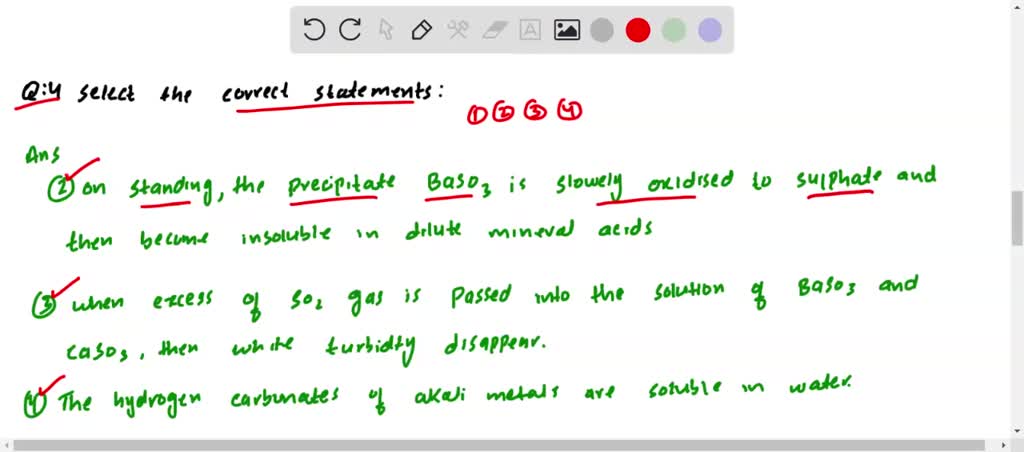 Q:4 select the correct statements:
① ② ③ ④
Ans
② on standing, the precipitate BaSO3 is slowly oxidised to sulphate and
then become insoluble in dilute mineral acids
③ when excess of SO2 gas is passed into the solution of BaSO3 and
CaSO3, then white turbidty disappear.
④ The hydrogen carbonates of akali metals are soluble in water.